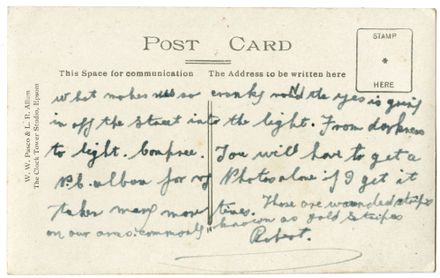 POST CARD
STAMP
*
HERE
This Space for communication The Address to be written here
W. W. Pasco & L. R. Allen
The Clock Tower Studio, Epsom
What makes us so cranky round the eyes is going
in off the street into the light. From darkness
to light. Compree. You will have to get a
P.C. album for my Photos alone if I get it
taken many more times. Those are wounded stripes
on our arms. commonly known as gold stripes
Robert.